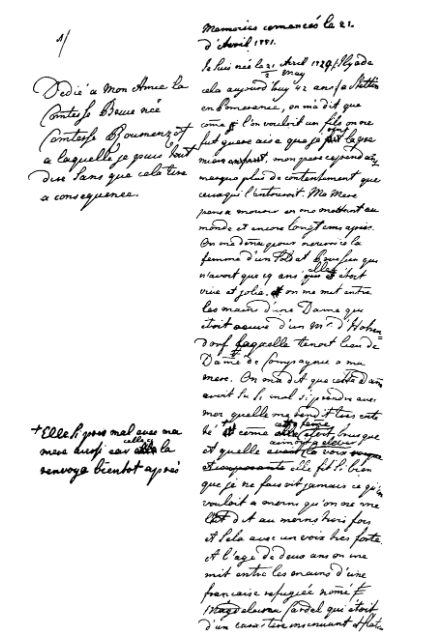 1/
Dedié a Mon Amie la
Comtesse Bruce née
Comtesse Roumenzof
a laquelle je puis tout
dire sans que cela tire
a consequence.
Memoires comencés le 21.
d'Avril 1771.
Je suis née le 21 Avril 1729, Il y a de
2 May
cela aujourd'huy 42 ans a Stettin
en Pomeranie, on m'a dit que
come l'on vouloit un fils on ne
fut guere aise que je la pre
miere, mon pere cependant
marqua plus de contentement que
ceux qui l'entouroit. Ma Mere
pensa mourir en me mettant au
monde et encore longtems apres.
On me dona pour nourrice la
femme d'un soldat Prussien qui
n'avoit que 19 ans elle étoit
vive et jolie. on me mit entre
les mains d'une Dame qui
étoit veuve d'un Mr. d'Hohen=
dorf laquelle tenoit lieu de
Dame de Compagnie a ma
mere. On m'a dit que cette Dame
avoit su si mal si prendre avec
moi quelle me rendit tres ente
té come étoit brusque
et quelle la voix
elle fit si bien
que je ne faisoit jamais ce qu'on
vouloit a moins qu'on ne me
l'eut dit au moins trois fois
et cela avec un voix tres forte.
A l'age de deux ans on me
mit entre les mains d'une
francaise refugiée nomé
Magdeleine Cardel qui étoit
d'un caractere insinuant et
+ Elle si pris mal avec ma
mere aussi car celle ci la
renvoya bientot après